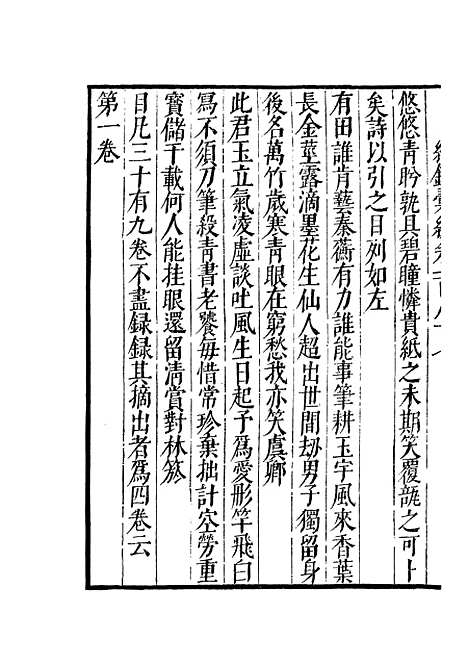 悠悠青盻孰具碧瞳憐貴紙之未期笑覆瓿之可卜
矣詩以引之目列如左
有田誰肯藝秦蘅有力誰能事筆耕玉宇風來香葉
長金莖露滴墨花生仙人超出世間劫男子獨留身
後名萬竹歲寒青眼在窮愁我亦笑虞卿
此君玉立氣凌虛談吐風生日起予爲愛形竿飛白
寫不須刀筆殺青書老饕每惜常珍棄拙計空勞重
寳儲千載何人能挂眼還留清賞對林
目凡三十有九卷不盡録録其摘出者爲四卷云
第一卷